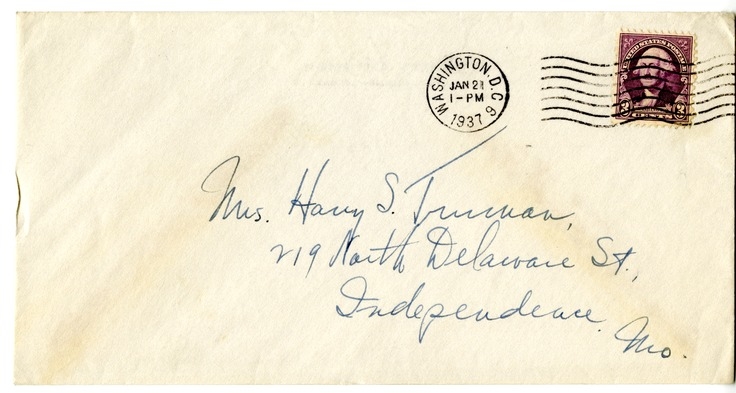 WASHINGTON, D.C.
JAN 21
1-PM
1937
9
UNITED STATES POSTAGE
3 3
CENTS
Mrs. Harry S. Truman,
219 North Delaware St.,
Independence,
Mo.